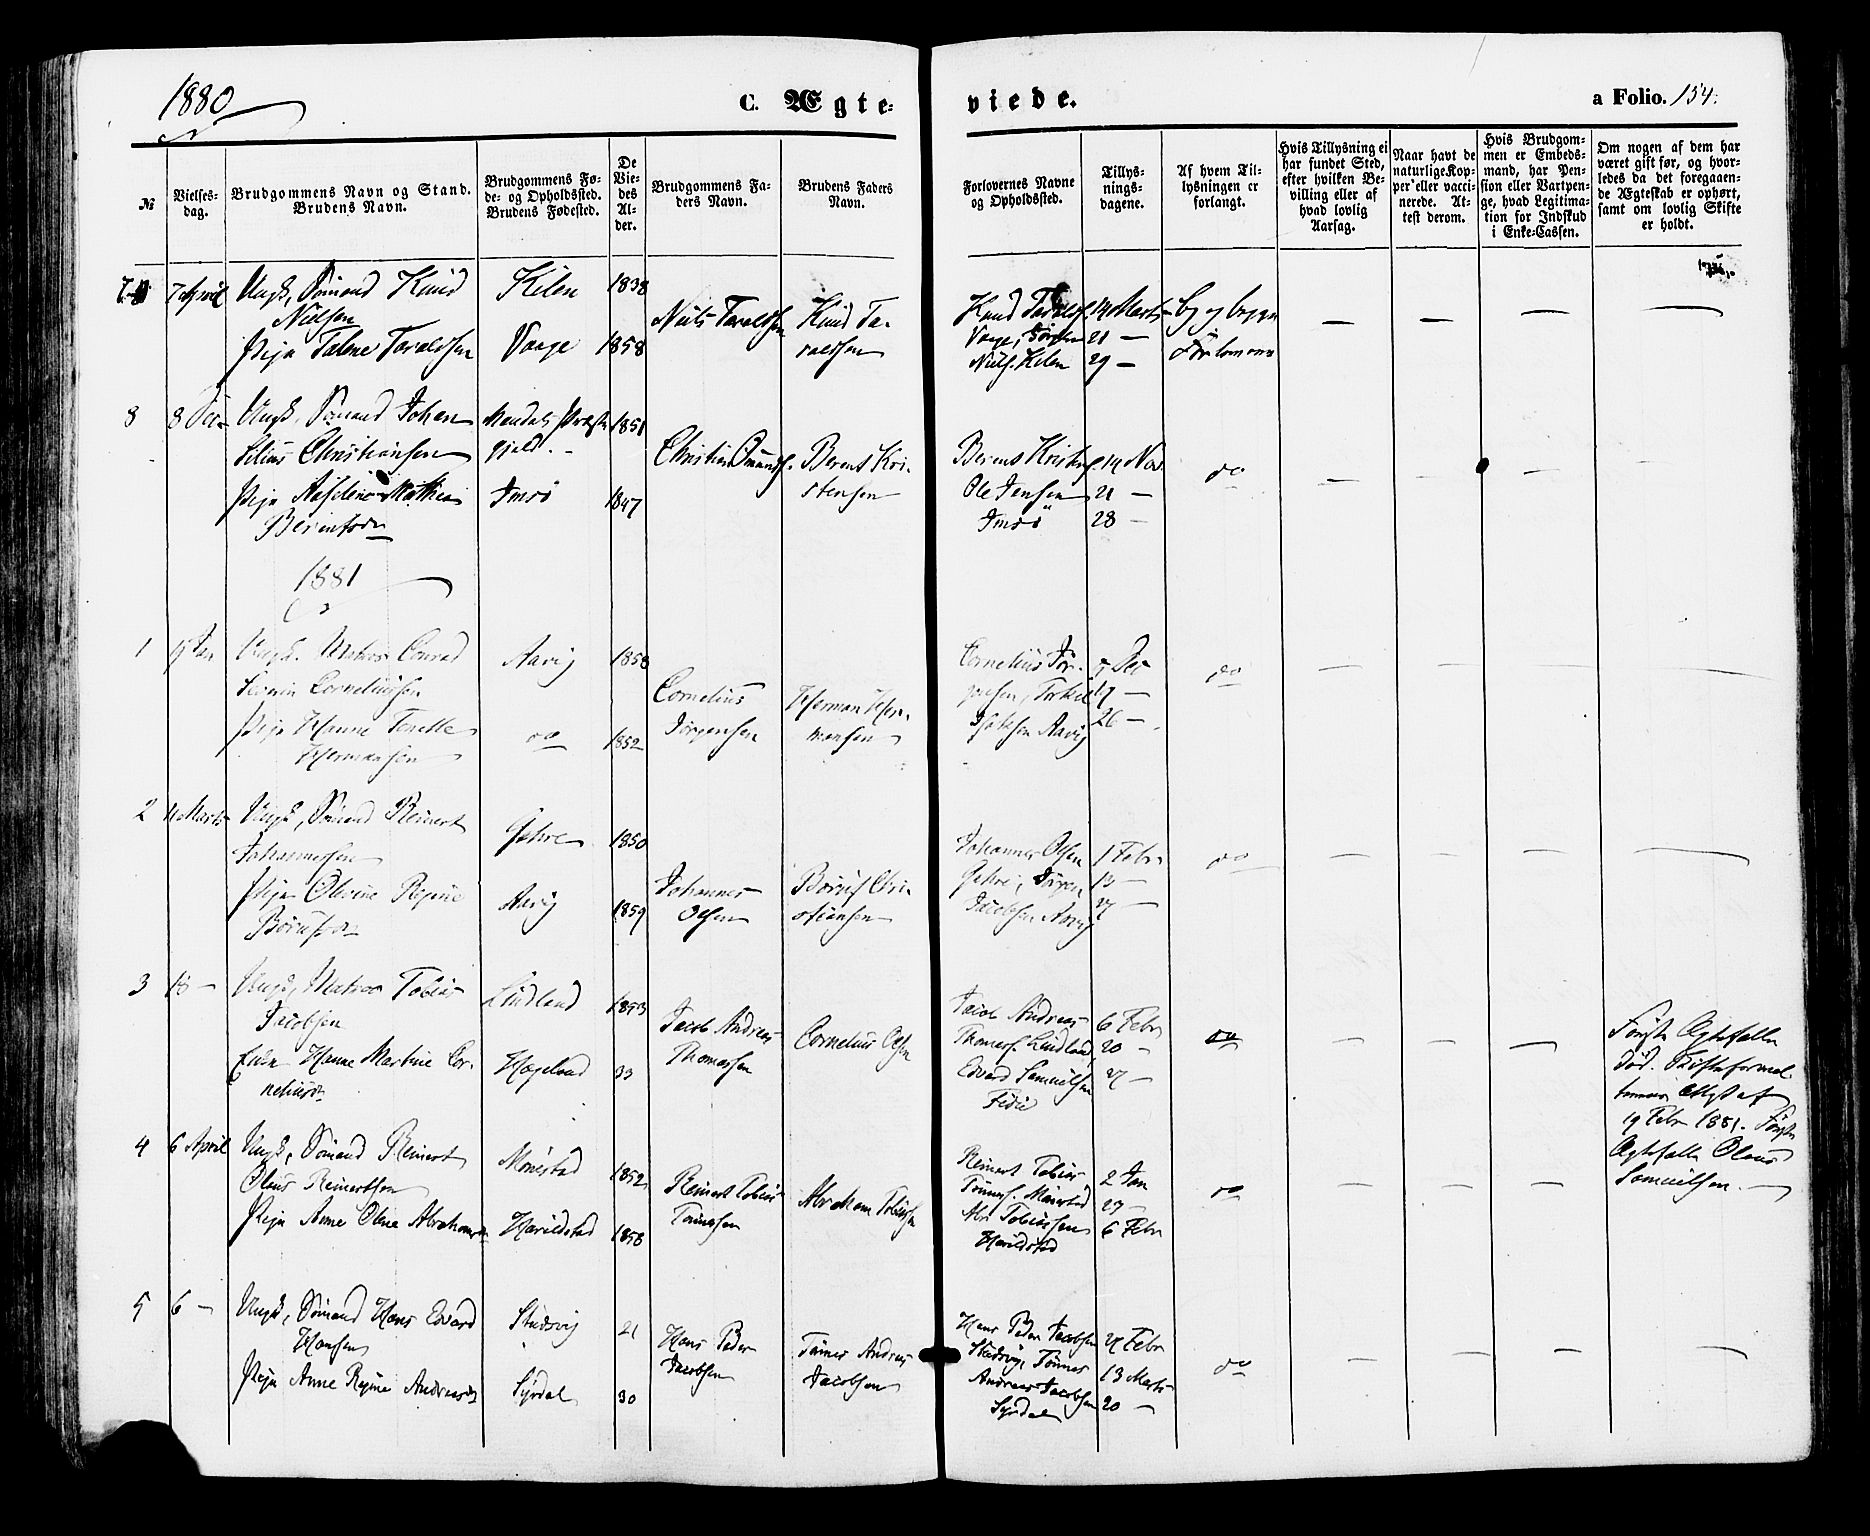 1880
C. Ægte-
viede.
a Folio. 154.
№
Vielses-
dag.
Brudgommens Navn og Stand.
Brudens Navn.
Brudgommens Fø-
de- og Opholdssted.
Brudens Fødested.
De
Vie-
des
Al-
der.
Brudgommens Fa-
ders Navn.
Brudens Faders
Navn.
Forlovernes Navne
og Opholdssted.
Tillys-
nings-
dagene.
Af hvem Til-
lysningen er
forlangt.
Hvis Tillysning ei
har fundet Sted,
efter hvilken Be-
villing eller af
hvad lovlig
Aarsag.
Naar havt de
naturlige Kop-
per eller vacci-
nerede. At-
test derom.
Hvis Brudgom-
men er Embeds-
mand, har Pen-
sion eller Vartpen-
ge, hvad Legitima-
tion for Indskud
i Enke-Cassen.
Om nogen af dem har
været gift før, og hvor-
ledes da det foregaaen-
de Ægteskab er ophørt,
samt om lovlig Skifte
er holdt.
7 7 April Ungk, Sømand Knud
Nielsen
Pige Talene Taraldsen
Kilen 1838
Vaage 1858
Niels Taraldsen
Knud Ta-
raldsen
Knud Taralds.
Vaage,
Niels. Kilen
14 Marts
21 —
29 —
Forlovere
8 8 Dec Ungk, Sømand Johan
Christiansen
Pige Aseline Mathea
Berentsdr
Mandals Præste
gjeld.
1851
Imsø 1847
Christian
Berent Kri-
stensen
Berent Krist
Ole Jensen
Imsø
14 Nov
21 —
28 —
do
1881
1 Jan Ungk. Matros Conrad
Severin Corneliussen
Pige Hanne Tenette
Hermansen
Aavig 1858
do 1852
Cornelius
Jørgensen
Herman Her-
mansen
Cornelius Jør-
gensen, Torkel
Aavig
Dec
26 —
do
2 11 Marts Ungk, Sømand Reinert
Johannessen
Pige Olevine Regine
Gahre 1850
Aavig 1859
Johannes
Olsen
Chri
stiansen
Johannes Olsen
Gahre, Jørgen
Jacobsen Aavig
1 Febr
13 —
27 —
do
3 18 — Ungk, Matros Tobias
Jacobsen
Enke Hanne Martine Cor-
neliusdr
Lindland 1853
Hageland 33
Jacob Andreas
Thomassen
Cornelius Olsen
Jacob Andreas
Thomass. Lindland,
Edvard Samuelsen
6 Febr
20 —
27 —
do
Første Ægtefælle
død.
Attest af
19 Febr 1881. Første
Ægtefælle Olaus
Samuelsen. —
4 6 April Ungk, Sømand Reinert
Olaus Reinertsen
Pige Anne Oline Abrahamsdr
Mønestad 1852
Harildstad 1858
Reinert Tobias
Tønnesen
Abraham Tobiassen
Reinert Tobias
Tønnes. Mønestad
Abr Tobiassen
Harildstad
2 Jan
23 —
6 Febr
do
5 6 — Ungk, Sømand Hans Edvard
Hansen
Pige Anne Regine Andreasdr
Studsvig 21
Syrdal 30
Hans Peder
Jacobsen
Tønnes Andreas
Jacobsen
Hans Peder Jacobsen
Studsvig, Tønnes
Andreas Jacobsen
Syrdal
27 Febr
13 Marts
20 —
do